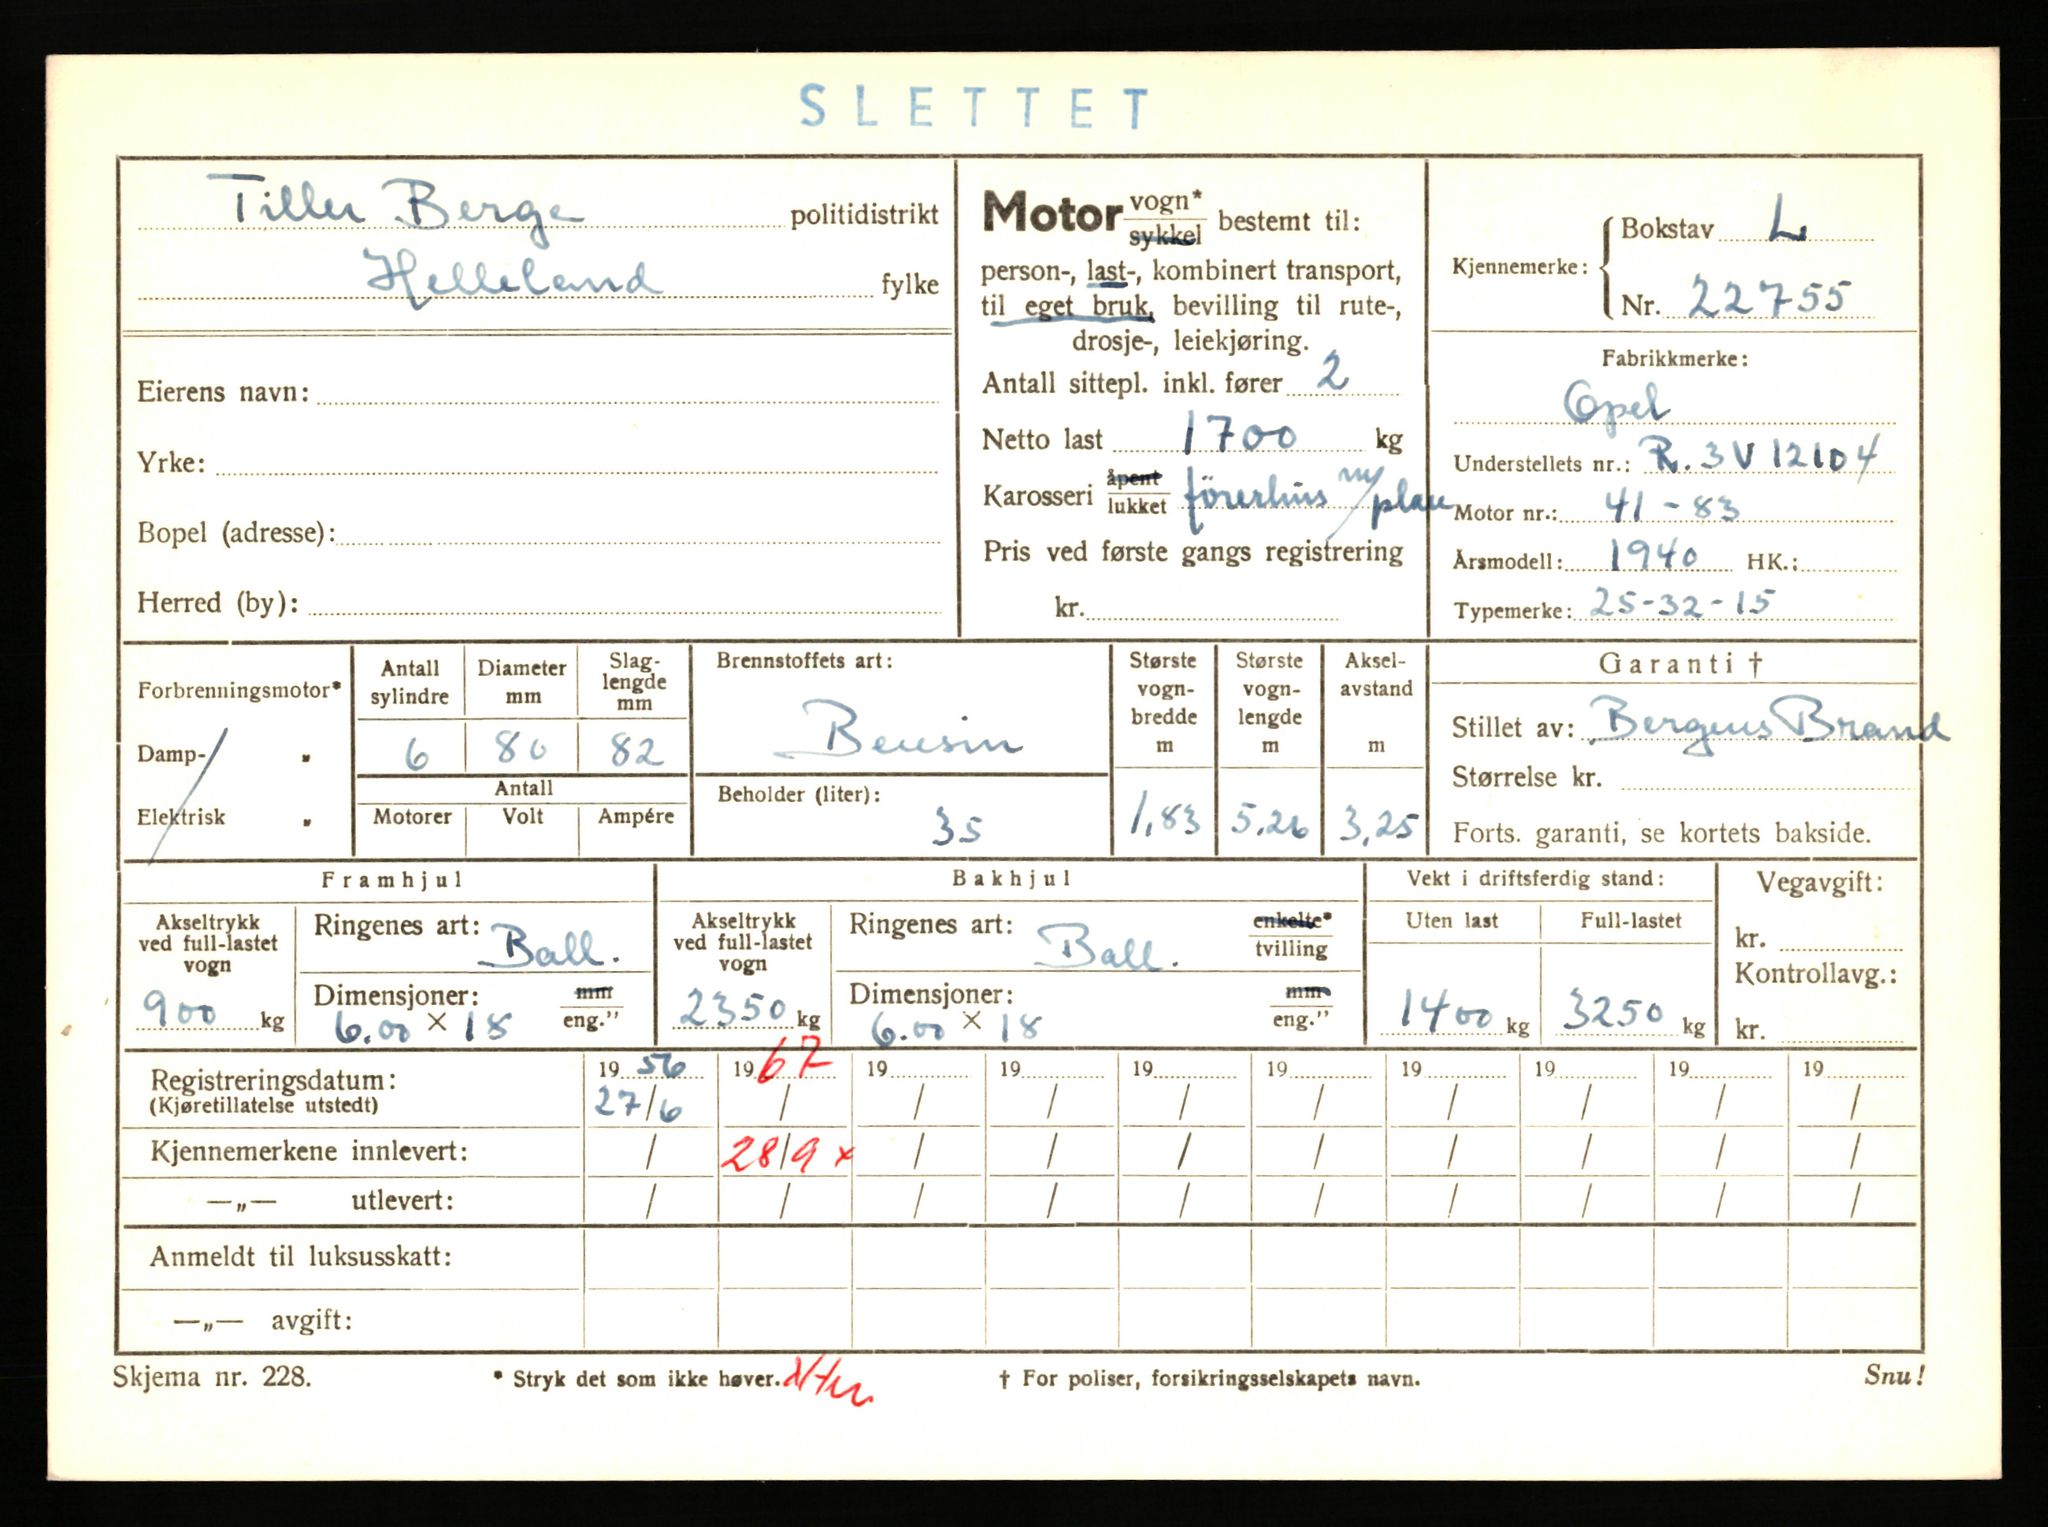 SLETTET
Tiller Berge politidistrikt
Helleland fylke
Eierens navn:
Yrke:
Bopel (adresse):
Herred (by):
Motor vogn* sykkel bestemt til:
person-, last-, kombinert transport,
til eget bruk, bevilling til rute-,
drosje-, leiekjøring.
Antall sittepl. inkl. fører 2
Netto last 1700 kg
Karosseri åpent lukket førerhus m/ plan
Pris ved første gangs registrering
kr.
Kjennemerke: Bokstav L
Nr. 22755
Fabrikkmerke:
Opel
Understellets nr.: R. 3V 12104
Motor nr.: 41-83
Årsmodell: 1940 HK.:
Typemerke: 25-32-15
Forbrenningsmotor*
Damp- "
Elektrisk "
Antall sylindre Diameter mm Slag-lengde mm
6 80 82
Antall
Motorer Volt Ampére
Brennstoffets art:
Bensin
Beholder (liter):
35
Største vogn-bredde m Største vogn-lengde m Aksel-avstand m
1,83 5,26 3,25
Garanti †
Stillet av: Bergens Brand
Størrelse kr.
Forts. garanti, se kortets bakside.
Framhjul
Akseltrykk ved full-lastet vogn
900 kg
Ringenes art: Ball.
Dimensjoner: mm eng."
6.00 × 18
Bakhjul
Akseltrykk ved full-lastet vogn
2350 kg
Ringenes art: Ball. enkelte* tvilling
Dimensjoner: mm eng."
6.00 × 18
Vekt i driftsferdig stand:
Uten last Full-lastet
1400 kg 3250 kg
Vegavgift:
kr.
Kontrollavg.:
kr.
Registreringsdatum: 1956 1967 19 19 19 19 19 19 19 19
(Kjøretillatelse utstedt) 27/6 / / / / / / / / /
Kjennemerkene innlevert: / 28/9 x / / / / / / / /
—„— utlevert: / / / / / / / / / /
Anmeldt til luksusskatt:
—„— avgift:
Skjema nr. 228. * Stryk det som ikke høver. † For poliser, forsikringsselskapets navn. Snu!